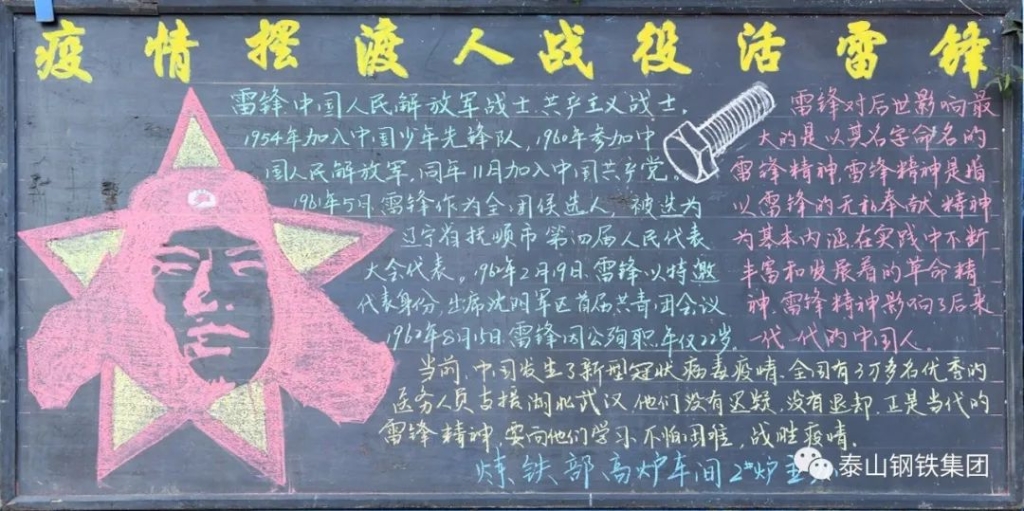 疫情摆渡人战役活雷锋
雷锋,中国人民解放军战士,共产主义战士。
1954年加入中国少年先锋队,1960年参加中
国人民解放军,同年11月加入中国共产党。
1961年5月,雷锋作为全团侯选人,被选为
辽宁省抚顺市第四届人民代表
大会代表。1962年2月19日,雷锋以特邀
代表身份,出席沈阳军区首届共青团会议
1962年8月15日,雷锋因公殉职,年仅22岁。
雷锋对后世影响最
大的是以其名字命名的
雷锋精神,雷锋精神是指
以雷锋的无私奉献精神
为基本内涵,在实践中不断
丰富和发展着的革命精
神,雷锋精神影响了后来
一代一代的中国人。
当前,中国发生了新型冠状病毒疫情,全国有3万多名优秀的
医务人员支援湖北武汉,他们没有迟疑,没有退却,正是当代的
雷锋精神,要向他们学习,不怕困难,战胜疫情。
炼铁部高炉车间2#炉
泰山钢铁集团